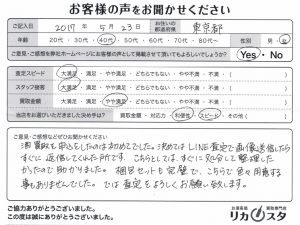 お客様の声をお聞かせください
ご記入日 2017年 5月 23日 お住いの都道府県 東京都
年齢 20代・30代・40代・50代・60代・70代 性別 男・女
ご意見・ご感想を弊社ホームページにお客様の声として掲載させて頂いてもよろしいでしょうか? Yes・No
査定スピード 大満足・満足・やや満足・どちらでもない・やや不満・不満
スタッフ接客 大満足・満足・やや満足・どちらでもない・やや不満・不満
買取金額 大満足・満足・やや満足・どちらでもない・やや不満・不満
当店をお選びいただきました決め手は? 買取金額・対応力・利便性・スピード・その他( )
ご意見・ご感想などぜひお聞かせください
酒買取を申込をしたのははじめてでした。決めてはLINE査定で画像送信したら
すぐに返信してくれた所です。こちらとしては、すぐに処分して整理した
かったので助かりました。梱包セットも完璧で、こちらで色々用意する
事もありませんでした。ぜひ査定をよろしくお願い致します。
ご協力ありがとうございました。
この度は誠にありがとうございました。
お酒買取専門店
リカスタ